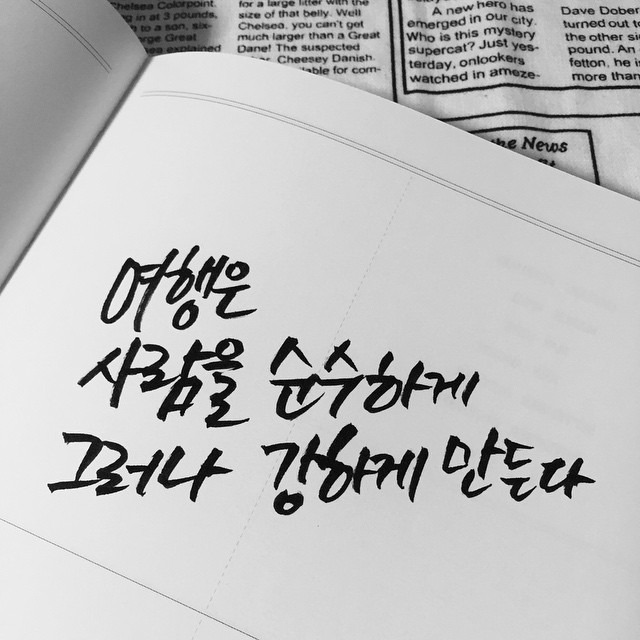 Chelsea Colorpoint.
ng in at 3 pounds,
to a son, six-
rge Great
explained
for a large litter with the
size of that belly. Well
Chelsea, you can't get
much larger than a Great
Dane! The suspected
Cheesey Danish.
lable for com-
A new hero has
emerged in our city.
Who is this mystery
supercat? Just yes-
terday, onlookers
watched in ameze-
Dave Dober
turned out t
the other si
pound. An
fetton, he is
more than
he News
여행은
사람을 순수하게
그러나 강하게 만든다